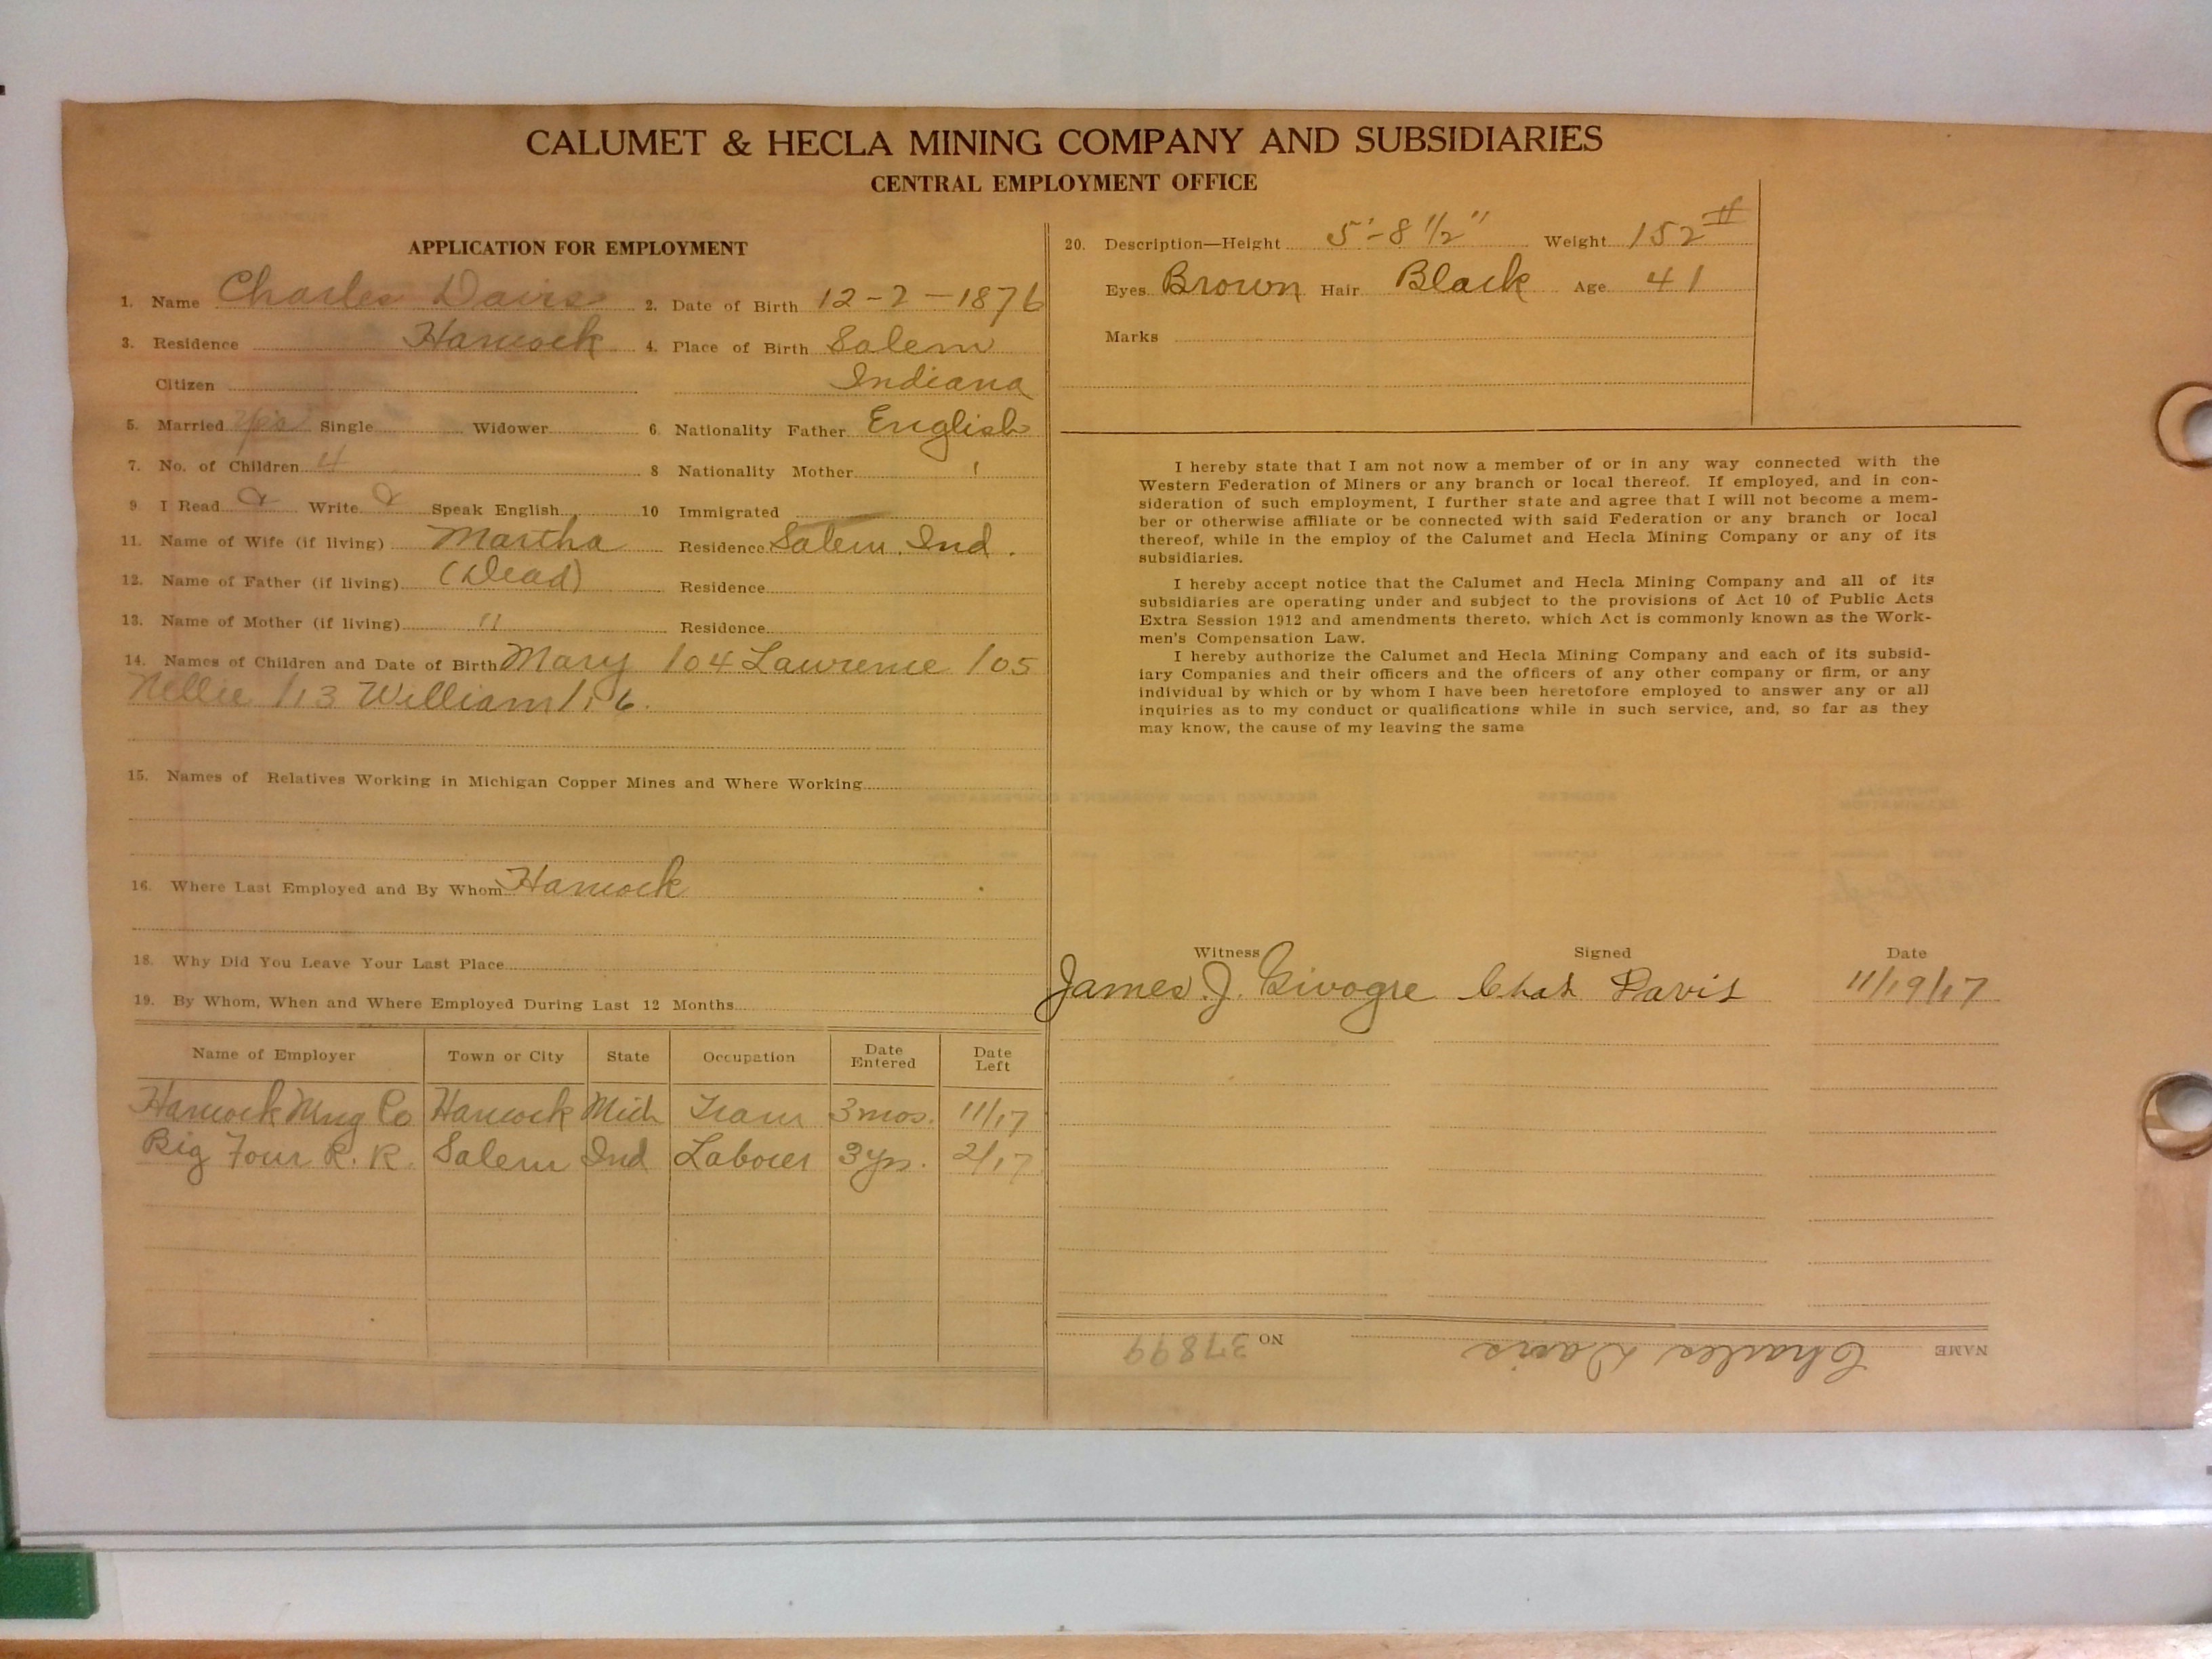 CALUMET & HECLA MINING COMPANY AND SUBSIDIARIES
CENTRAL EMPLOYMENT OFFICE
APPLICATION FOR EMPLOYMENT
1. Name Charles Davis 2. Date of Birth 12-2-1876
3. Residence Hancock 4. Place of Birth Salem
Citizen Indiana
5. Married yes Single Widower 6. Nationality Father English
7. No. of Children 4 8 Nationality Mother "
9. I Read Write Speak English 10 Immigrated
11. Name of Wife (if living) Martha Residence Salem, Ind.
12. Name of Father (if living) (Dead) Residence
13. Name of Mother (if living) " Residence
14. Names of Children and Date of Birth Mary 104 Lawrence 105
Nellie 113 William 116.
15. Names of Relatives Working in Michigan Copper Mines and Where Working
16. Where Last Employed and By Whom Hancock
18. Why Did You Leave Your Last Place
19. By Whom, When and Where Employed During Last 12 Months
Name of Employer Town or City State Occupation Date Entered Date Left
Hancock Mng Co Hancock Mich Tram 3 mos. 11/17
Big Four R. R. Salem Ind Laborer 3 yrs. 2/17
20. Description—Height 5'-8 1/2" Weight 152#
Eyes Brown Hair Black Age 41
Marks
I hereby state that I am not now a member of or in any way connected with the
Western Federation of Miners or any branch or local thereof. If employed, and in con-
sideration of such employment, I further state and agree that I will not become a mem-
ber or otherwise affiliate or be connected with said Federation or any branch or local
thereof, while in the employ of the Calumet and Hecla Mining Company or any of its
subsidiaries.
I hereby accept notice that the Calumet and Hecla Mining Company and all of its
subsidiaries are operating under and subject to the provisions of Act 10 of Public Acts
Extra Session 1912 and amendments thereto, which Act is commonly known as the Work-
men's Compensation Law.
I hereby authorize the Calumet and Hecla Mining Company and each of its subsid-
iary Companies and their officers and the officers of any other company or firm, or any
individual by which or by whom I have been heretofore employed to answer any or all
inquiries as to my conduct or qualifications while in such service, and, so far as they
may know, the cause of my leaving the same
Witness Signed Date
James. J. Givogre Chas Davis 11/19/17
NAME Charles Davis NO 37899